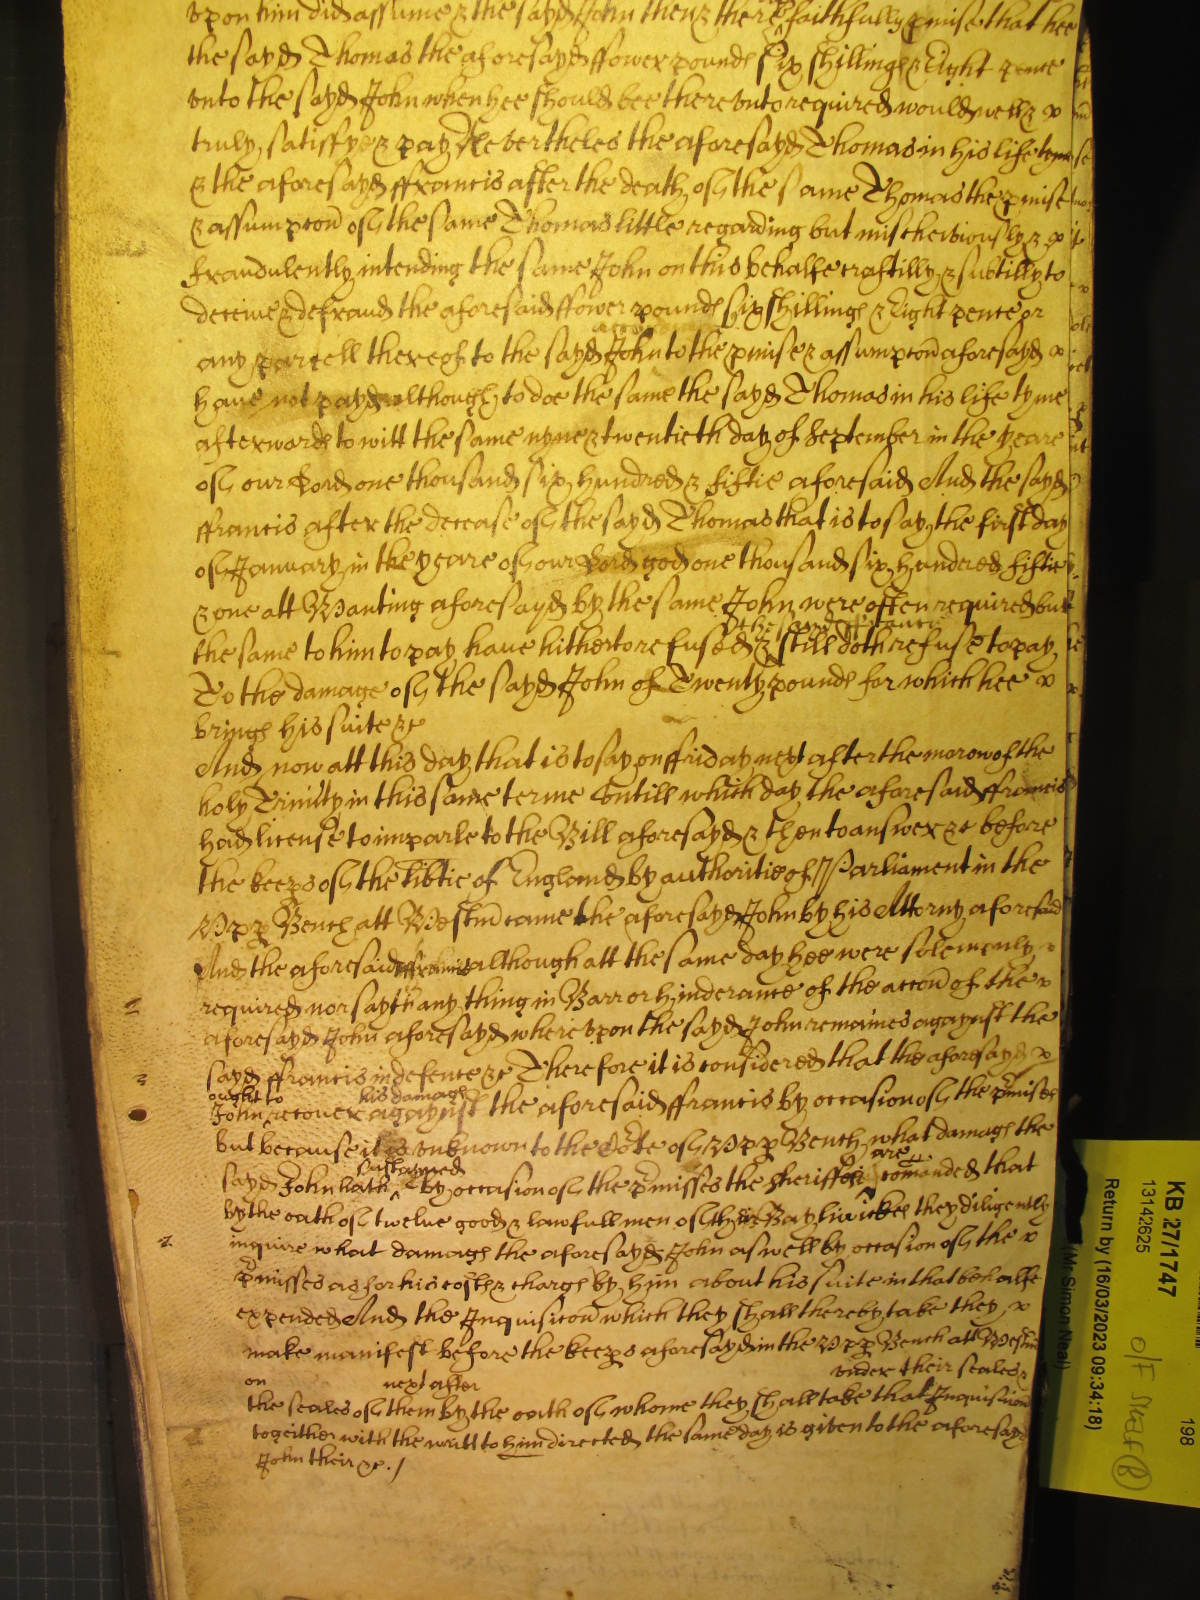 vpon him did assume & the sayd John then & there faithfully pmise that hee
the sayd Thomas the aforesayd ffower pounds six shillings & Eight pence
vnto the sayd John when hee should bee therevnto required would well & x
truly satisfye & pay Neverthelesse the aforesayd Thomas in his life tyme
& the aforesayd ffrancis after the death of the same Thomas the pmise
& assumpcon of the same Thomas little regarding but mischeviously & x
fraudulently intending the same John on this behalfe craftilly & subtilly to
deceive & defraud the aforesaid ffower pounds six shillings & Eight pence or
any parcell thereof to the sayd John to the pmise & assumpcon aforesayd x
have not payd although to doe the same the sayd Thomas in his life tyme
afterwards to witt the same nyne & twentieth day of September in the yeare
of our Lord one thousand six hundred & fiftie aforesaid And the sayd
ffrancis after the decease of the sayd Thomas that is to say the first day
of January in the yeare of our Lord god one thousand six hundred fiftie
& one att Wanting aforesayd by the same John were often required but
the sayd ffrancis
the same to him to pay have hitherto refused & still doth refuse to pay
To the damage of the sayd John of Twenty pounds for which hee x
brings his suite &c
And now att this day that is to say on ffriday next after the morow of the
holy Trinity in this same terme Untill which day the aforesaid ffrancis
had license to imparle to the Bill aforesayd & then to answer &c before
the keeps of the libtie of England by authoritie of Parliament in the
Upp Bench att Westm came the aforesayd John by his Attorny aforesaid
And the aforesaid ffrancis although att the same day hee were solemenly x
required nor sayth any thing in Barr or hinderance of the accon of the x
aforesayd John aforesayd wherevpon the sayd John remaines agaynst the
sayd ffrancis in defence &c Therefore it is considered that the aforesayd x
ought to his damage
John recover agaynst the aforesaid ffrancis by occasion of the pmises
but because it is vnknown to the Cote of Upp Bench what damags the
sustayned are
sayd John hath by occasion of the pmisses the sheriffes comended that
by the oath of twelve good & lawfull men of their Bayliwickes they diligently
inquire what damags the aforesayd John aswell by occasion of the x
pmisses as for his costs & charges by him about his suite in that behalfe
expended And the Inquisicon which they shall thereby take they x
make manifest before the keeps aforesayd in the Upp Bench att Westm
on next after under their seales &
the seales of them by the oath of whome they shall take that Inquisicon
togeither with the writt to him directed the same day is given to the aforesayd
John their &c.
KB 27/1747
13142625
Return by (16/03/2023 09:34:18)
(Mr Simon Neal)
198